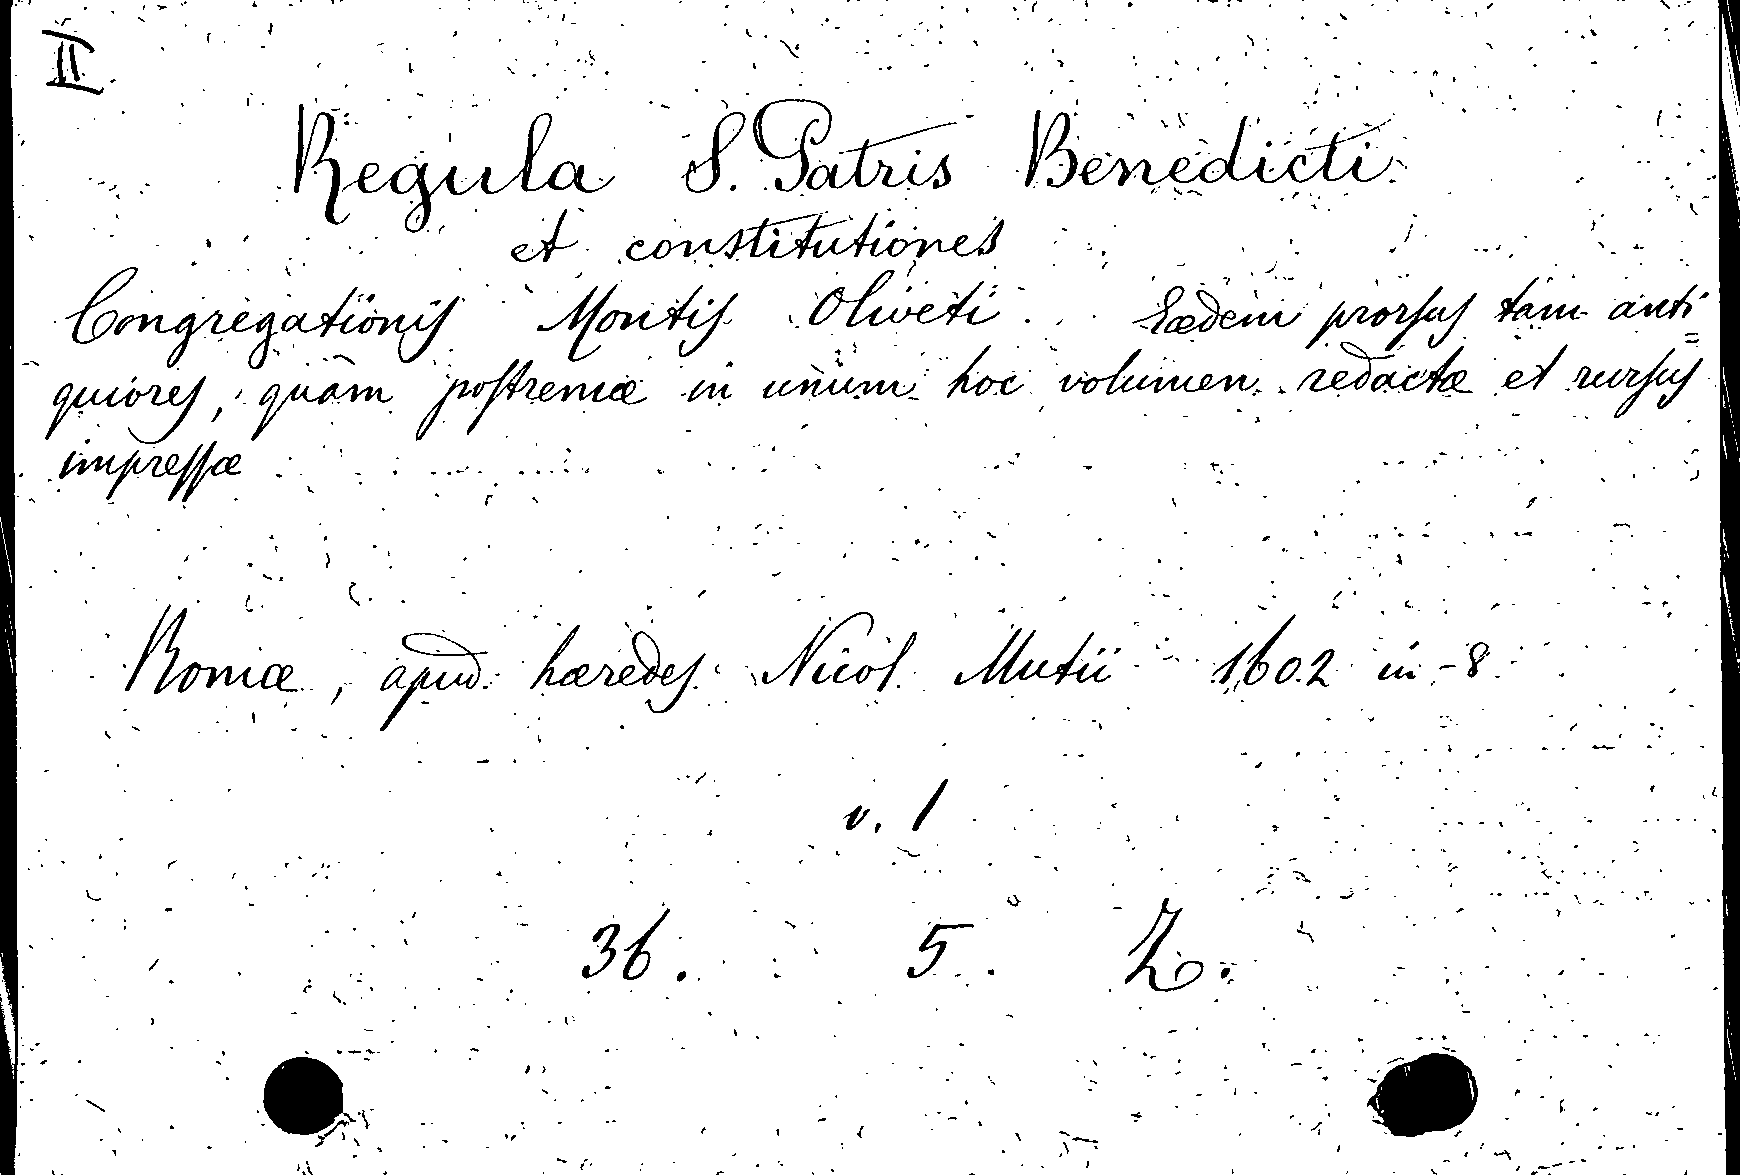 II
Regula S. Patris Benedicti
et constitutiones
Congregationis Montis Oliveti. Eædem prorsus tam anti=
quiores, quam postremæ in unum hoc volumen redactæ et rursus
impressæ
Romæ, apud hæredes Nicol. Mutii 1602 in-8
v. 1
36. 5. Z.